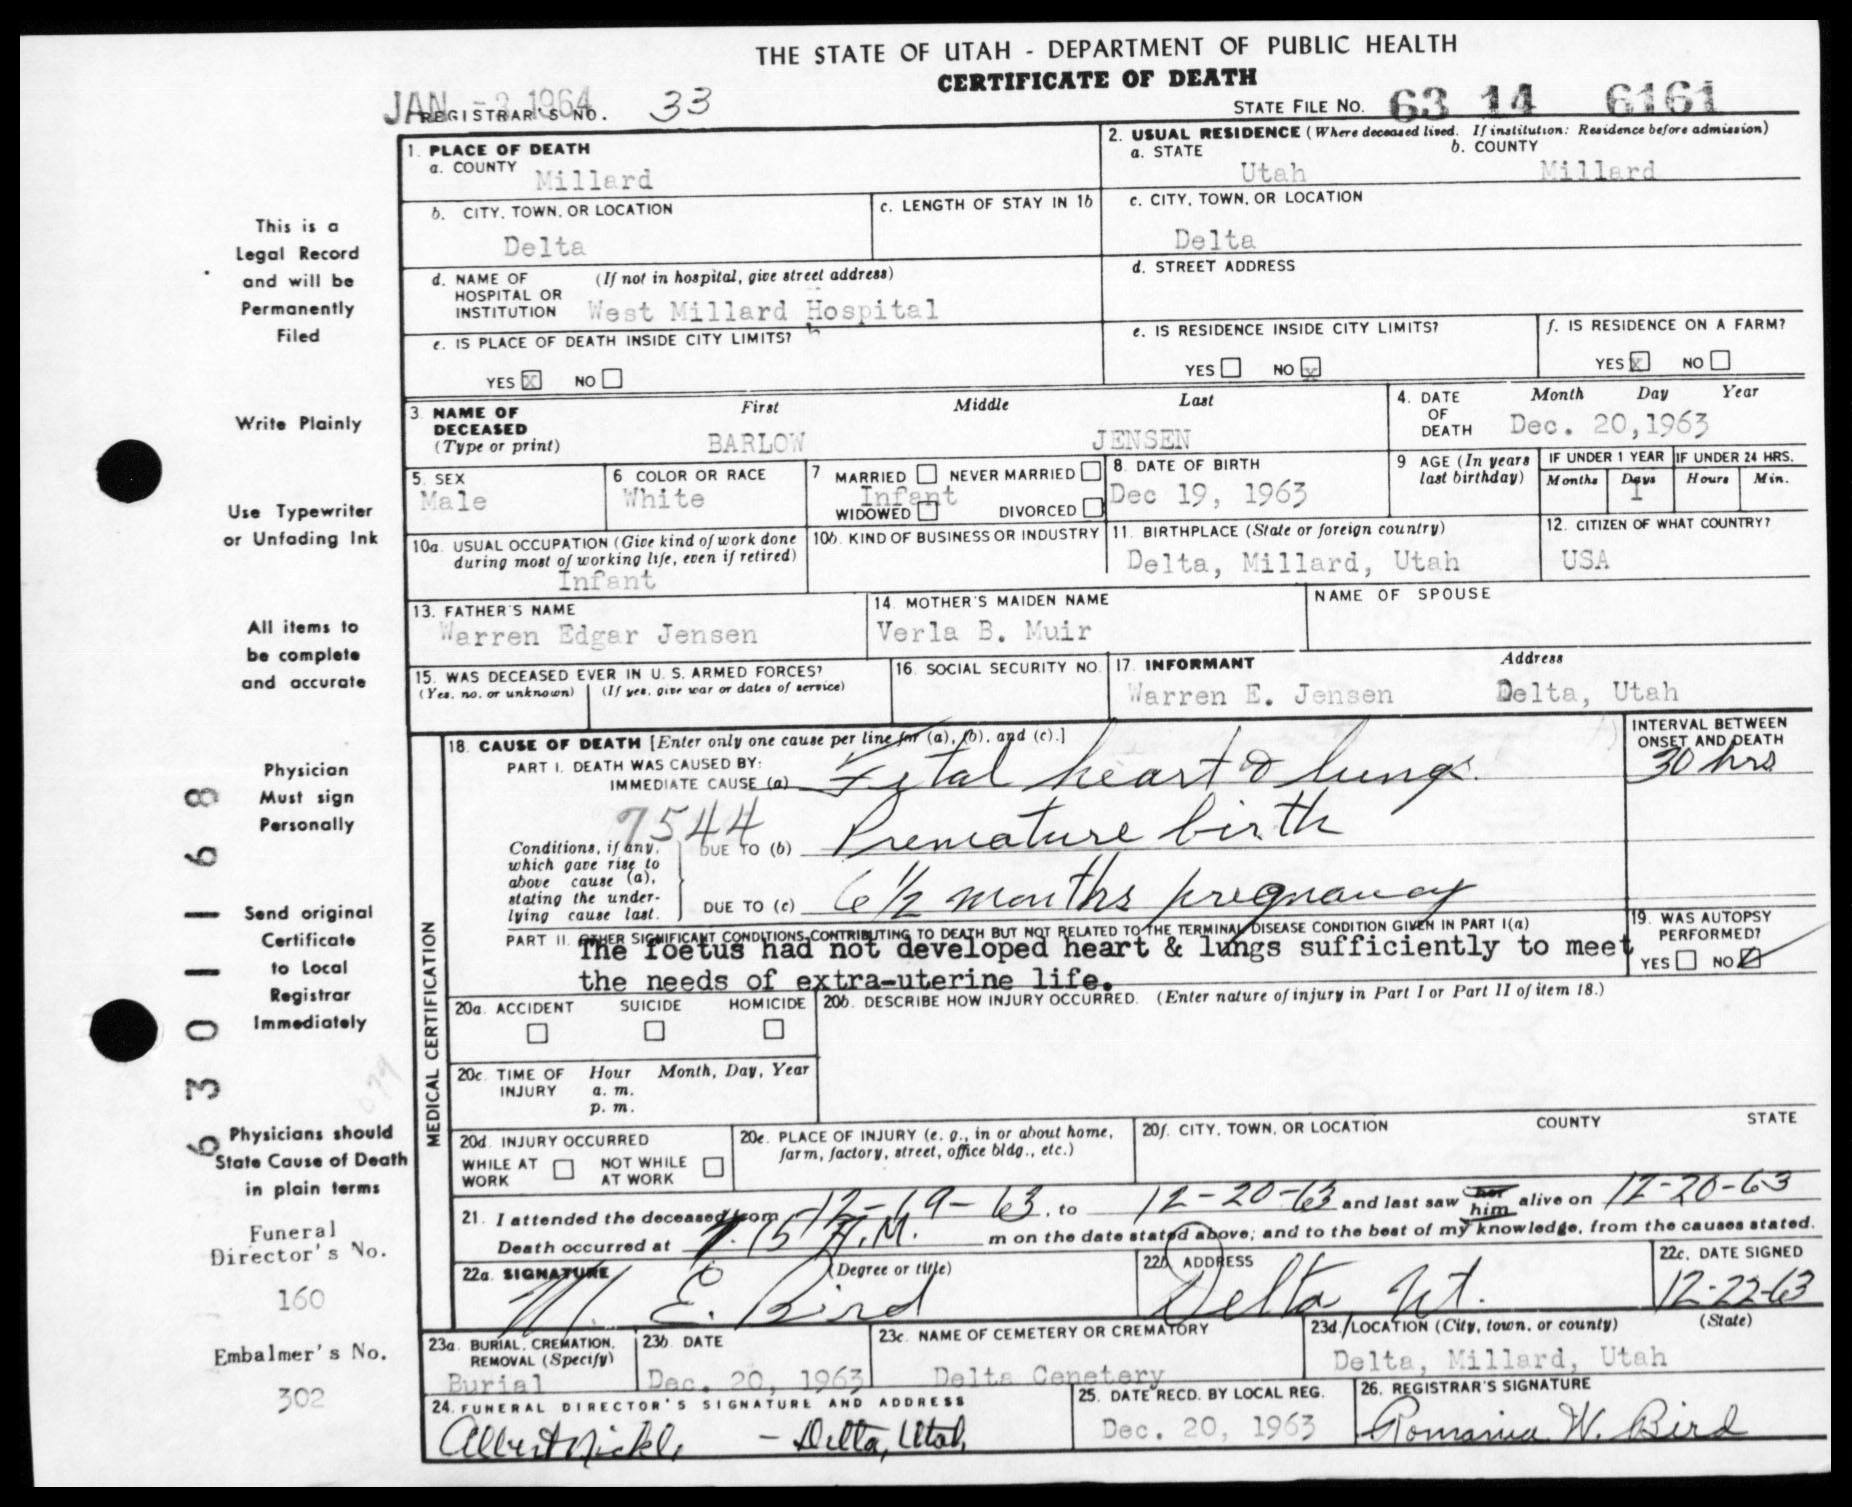 THE STATE OF UTAH - DEPARTMENT OF PUBLIC HEALTH
CERTIFICATE OF DEATH
JAN -3 1964
REGISTRAR'S NO. 33
STATE FILE NO. 63 14 6161
1. PLACE OF DEATH
a. COUNTY Millard
2. USUAL RESIDENCE (Where deceased lived. If institution: Residence before admission)
a. STATE Utah b. COUNTY Millard
b. CITY, TOWN, OR LOCATION Delta
c. LENGTH OF STAY IN 1b
c. CITY, TOWN, OR LOCATION Delta
d. NAME OF HOSPITAL OR INSTITUTION (If not in hospital, give street address) West Millard Hospital
d. STREET ADDRESS
e. IS PLACE OF DEATH INSIDE CITY LIMITS?
YES x NO
e. IS RESIDENCE INSIDE CITY LIMITS?
YES NO x
f. IS RESIDENCE ON A FARM?
YES x NO
3. NAME OF DECEASED (Type or print) First Middle Last
BARLOW JENSEN
4. DATE OF DEATH Month Day Year
Dec. 20,1963
5. SEX Male
6 COLOR OR RACE White
7 MARRIED NEVER MARRIED
Infant
WIDOWED DIVORCED
8. DATE OF BIRTH Dec 19, 1963
9 AGE (In years last birthday)
IF UNDER 1 YEAR Months Days 1
IF UNDER 24 HRS. Hours Min.
10a. USUAL OCCUPATION (Give kind of work done during most of working life, even if retired) Infant
10b. KIND OF BUSINESS OR INDUSTRY
11. BIRTHPLACE (State or foreign country) Delta, Millard, Utah
12. CITIZEN OF WHAT COUNTRY? USA
13. FATHER'S NAME Warren Edgar Jensen
14. MOTHER'S MAIDEN NAME Verla B. Muir
NAME OF SPOUSE
15. WAS DECEASED EVER IN U. S. ARMED FORCES?
(Yes, no, or unknown) (If yes, give war or dates of service)
16. SOCIAL SECURITY NO.
17. INFORMANT Address
Warren E. Jensen Delta, Utah
MEDICAL CERTIFICATION
18. CAUSE OF DEATH [Enter only one cause per line for (a), (b), and (c).]
INTERVAL BETWEEN ONSET AND DEATH
PART I. DEATH WAS CAUSED BY:
IMMEDIATE CAUSE (a) Fetal heart & lungs. 30 hrs
7544
Conditions, if any, which gave rise to above cause (a), stating the underlying cause last.
DUE TO (b) Premature birth
DUE TO (c) 6 1/2 months pregnancy
PART II. OTHER SIGNIFICANT CONDITIONS CONTRIBUTING TO DEATH BUT NOT RELATED TO THE TERMINAL DISEASE CONDITION GIVEN IN PART I(a)
The foetus had not developed heart & lungs sufficiently to meet
the needs of extra-uterine life.
19. WAS AUTOPSY PERFORMED?
YES NO
20a. ACCIDENT SUICIDE HOMICIDE
20b. DESCRIBE HOW INJURY OCCURRED. (Enter nature of injury in Part I or Part II of item 18.)
20c. TIME OF INJURY Hour a. m. p. m. Month, Day, Year
20d. INJURY OCCURRED
WHILE AT WORK NOT WHILE AT WORK
20e. PLACE OF INJURY (e. g., in or about home, farm, factory, street, office bldg., etc.)
20f. CITY, TOWN, OR LOCATION COUNTY STATE
21. I attended the deceased from 12-19-63, to 12-20-63 and last saw her him alive on 12-20-63
Death occurred at 7.15 A.M. m on the date stated above; and to the best of my knowledge, from the causes stated.
22a. SIGNATURE (Degree or title) M. E. Bird
22b ADDRESS Delta, Ut.
22c. DATE SIGNED 12-22-63
23a. BURIAL, CREMATION, REMOVAL (Specify) Burial
23b. DATE Dec. 20, 1963
23c. NAME OF CEMETERY OR CREMATORY Delta Cemetery
23d. LOCATION (City, town, or county) (State)
Delta, Millard, Utah
24. FUNERAL DIRECTOR'S SIGNATURE AND ADDRESS
Albert Nickle - Delta, Utah,
25. DATE RECD. BY LOCAL REG. Dec. 20, 1963
26. REGISTRAR'S SIGNATURE Romania W. Bird
This is a
Legal Record
and will be
Permanently
Filed
Write Plainly
Use Typewriter
or Unfading Ink
All items to
be complete
and accurate
Physician
Must sign
Personally
Send original
Certificate
to Local
Registrar
Immediately
Physicians should
State Cause of Death
in plain terms
Funeral
Director's No.
160
Embalmer's No.
302
6 3 0 1 1 6 8
079